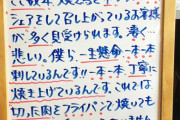 シェアをして召し上がっているお客様
が多く見受けられます。凄く
悲しい。僕ら、一生懸命一本一本
刺しているんです!!一本一本丁寧に
焼き上げているんです。これでは
切った肉をフライパンで焼いても